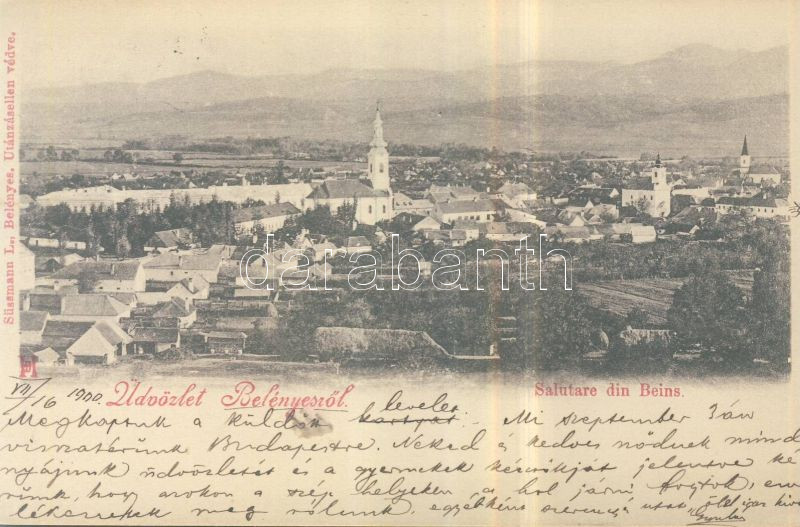 Süssmann L., Belényes. Utánzásellen védve.
darabanth
Üdvözlet Belényesről.
Salutare din Beins.
VII/16 1900.
levelet
Megkaptuk a küldött kartyat. Mi szeptember 3án
visszatérünk Budapestre. Neked és kedves nődnek mind
nyájunk üdvözletét és a gyermekek kézcsókját jelentve ké
rünk, hogy azokon a szép helyeken a hol járni fogtok, em
lékezzetek meg rólunk, egyébként szerencsés utat, ölel igaz